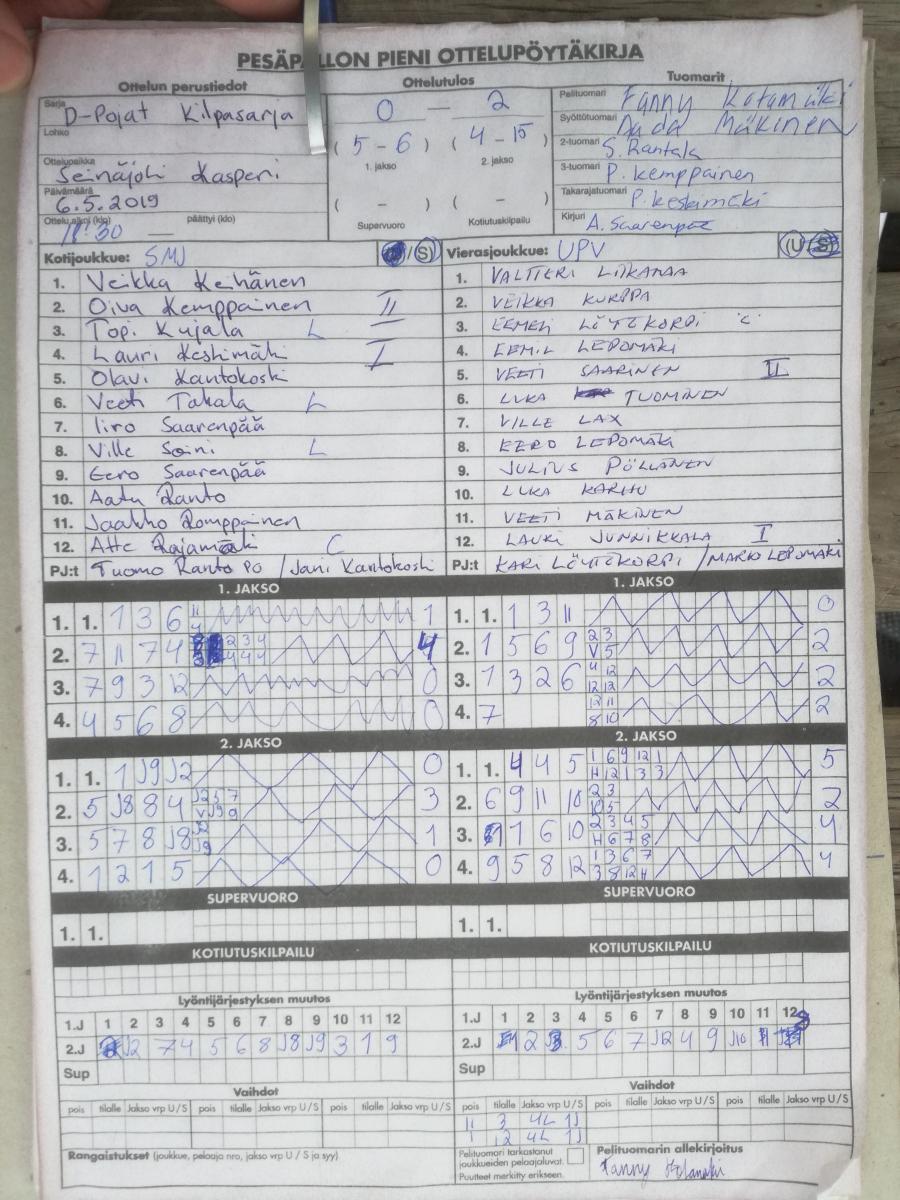 PESÄPALLON PIENI OTTELUPÖYTÄKIRJA
Ottelun perustiedot
Ottelutulos
Tuomarit
Sarja D-Pojat Kilpasarja
Lohko
Ottelupaikka Seinäjoki Kasperi
Päivämäärä 6.5.2019
Ottelu alkoi (klo) 18:30 — päättyi (klo)
0 — 2
( 5 - 6 ) ( 4 - 15 )
1. jakso 2. jakso
( - ) ( - )
Supervuoro Kotiutuskilpailu
Pelituomari Fanny Katamäki
Syöttötuomari Aada Mäkinen
2-tuomari S. Rantala
3-tuomari P. Kemppainen
Takarajatuomari P. Keskimäki
Kirjuri A. Saarenpää
Kotijoukkue: SMJ /S
1. Veikka Keihänen
2. Oiva Kemppainen II
3. Topi Kujala L
4. Lauri Keskimäki I
5. Olavi Kantokoski
6. Veeti Takala L
7. Iiro Saarenpää
8. Ville Soini L
9. Eero Saarenpää
10. Aatu Ranto
11. Jaakko Romppainen
12. Atte Rajamäki C
PJ:t Tuomo Ranto PO / Jani Kantokoski
Vierasjoukkue: UPV U/S
1. VALTTERI LIIKAMAA
2. VEIKKA KURPPA
3. EEMELI LÖYTÖKORPI C
4. EEMIL LEPOMÄKI
5. VEETI SAARINEN II
6. LUKA TUOMINEN
7. VILLE LAX
8. EERO LEPOMÄKI
9. JULIUS PÖLLÄNEN
10. LUKA KARHU
11. VEETI MÄKINEN
12. LAURI JUNNIKKALA I
PJ:t KARI LÖYTÖKORPI / MARKO LEPOMÄKI
1. JAKSO
1. 1. 1 3 6 11 4 1
2. 7 11 7 4 2 3 4 4 4 4 4
3. 7 9 3 12 0
4. 4 5 6 8 0
1. JAKSO
1. 1. 1 3 11 0
2. 1 5 6 9 2 3 V 5 2
3. 1 3 2 6 4 12 12 12 2
4. 7 12 11 8 10 2
2. JAKSO
1. 1. 1 J9 J2 0
2. 5 J8 8 4 J2 5 7 V J9 9 3
3. 5 7 8 J8 J2 J9 1
4. 1 2 1 5 0
2. JAKSO
1. 1. 4 4 5 1 6 9 12 11 12 1 3 3 5
2. 6 9 11 10 2 3 10 5 2
3. 1 6 10 2 3 4 5 4 6 7 8 4
4. 9 5 8 12 1 3 6 7 3 8 12 11 4
SUPERVUORO
1. 1.
SUPERVUORO
1. 1.
KOTIUTUSKILPAILU
KOTIUTUSKILPAILU
Lyöntijärjestyksen muutos
1.J 1 2 3 4 5 6 7 8 9 10 11 12
2.J J2 7 4 5 6 8 J8 J9 3 1 9
Sup
Lyöntijärjestyksen muutos
1.J 1 2 3 4 5 6 7 8 9 10 11 12
2.J 2 5 6 7 J12 4 9 J10
Sup
Vaihdot
pois tilalle Jakso vrp U / S pois tilalle Jakso vrp U / S pois tilalle Jakso vrp U / S
Vaihdot
pois tilalle Jakso vrp U / S pois tilalle Jakso vrp U / S pois tilalle Jakso vrp U / S
11 3 4L 1J
1 12 4L 1J
Rangaistukset (joukkue, pelaaja nro, jakso vrp U / S ja syy).
Pelituomari tarkastanut joukkueiden pelaajaluvat.
Puutteet merkitty erikseen.
Pelituomarin allekirjoitus
Fanny